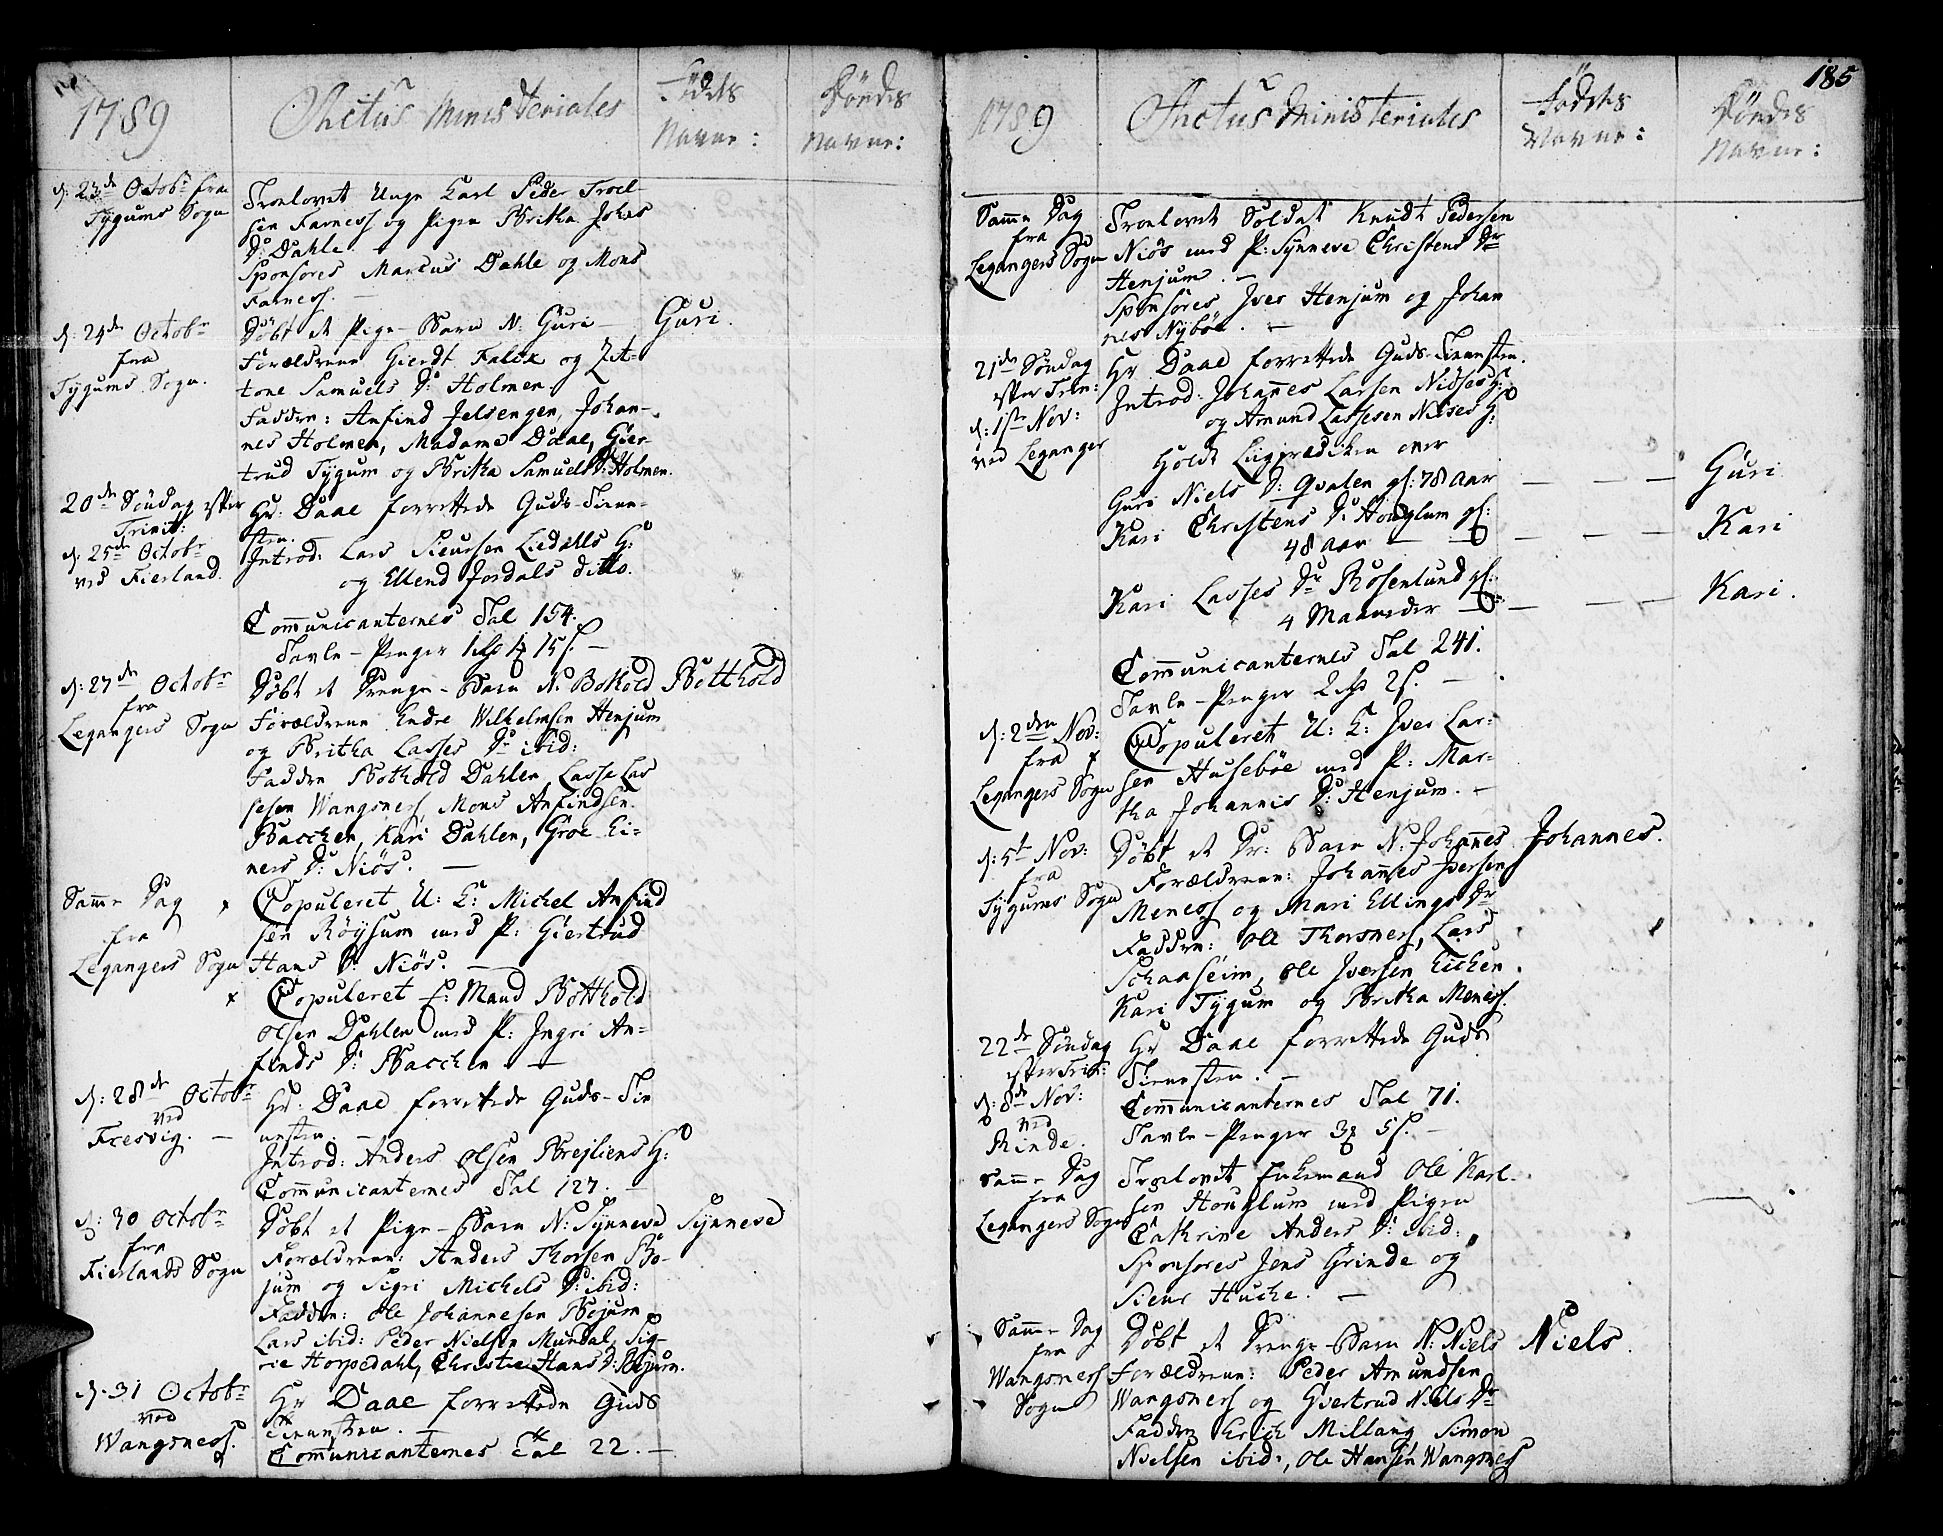 1789
Actus Ministeriales
Födtes
Navne:
Dödes
Navne:
d: 23de Octobr fra
Tygums Sogn
Troelovet Unge Karl Peder Troel-
sen Farness og Pigen Britha Johns
Dr Dahle. -
Sponsores Marcus Dahle og Mons
Farness. -
d: 24de Octobr
fra
Tygums Sogn.
Döbt et Pige-Barn N: Guri -
Guri.
Forældrene Gierdt Falck og
tone Samuels Dr Holmen
Faddre: Anfind Jelsengen, Johan-
nes Holmen, Madame Daae, Gier-
trud Tygum og Britha Samuels Dr: Holmen.
20de Söndag efter
Trinit:
d: 25de Octobr
ved Fierland.
Hr: Daae forrettede Guds-Tiene-
sten.
Introd: Lars Siursen Liedahls H:
og Ellend Jordals ditto.
Communicanternes Tal 154.
Tavle-Penger 1 15 s. -
d: 27de Octobr
fra
Legangers Sogn
Döbt et Drenge-Barn N: Bothold
Botthold
Forældrene Endre Wilhelmsen Henjum
og Britha Lasses Dr ibid:
Faddre Bothold Dahlen, Lasse Las
sesen Wangsness Mons Anfindsen
Bacchen, Kari Dahlen, Groe Ei-
ners Dr: Niös. -
Samme Dag
fra
Legangers Sogn
Copuleret U: K: Michel Anfind
sen Röysum med P: Giertrud
Hans Dr Niös. -
Copuleret E: Mand Botthold
Olsen Dahlen med P: Ingri An-
finds Dr: Bacchen -
d: 28de Octobr
ved
Fresvig. -
Hr: Daae forrettede Guds-Tie
nesten. -
Introd: Anders Olsen Brejliens H:
Communicanternes Tal 127. -
d: 30 Octobr
fra
Fierlands Sogn
Döbt et Pige-Barn N: Synneve
Synneve
Forældrene: Anders Thorsen Bo-
jum og Sigri Michels Dr: ibid:
Faddre: Ole Johannesen Bojum
Lars ibid: Peder Nielsen Mundal, Sig-
rie Horpedahl, Christie Hans Dr: Bojum.
d. 31 Octobr
ved
Wangsness.
Hr Daae forrettede Guds
Tienesten. -
Communicanternes Tal 22. -
185
1789
Actus Ministeriales
Födtes
Navne:
Dödes
Navne:
Samme Dag
fra
Legangers Sogn
Troelovet Soldat Knudt Pedersen
Niös med P: Synneve Christens Dr
Henjum. -
Sponsores Iver Henjum og Johan
nes Nyböe. -
21de Söndag
efter Trin:
d: 1ste Nov:
ved Leganger
Hr Daae forrettede Guds-Tienesten.
Introd: Johannes Larsen Niöses H:
og Amund Lassesen Niöses H:
Holdt Liigprædiken over
Guri Niels Dr: Qvalen gl: 78 Aar
Guri
Kari Christens Dr: Houglum gl:
48 Aar -
Kari
Kari Lasses Dr Rosenlund gl:
4 Maaneder -
Kari.
Communicanternes Tal 241.
Tavle-Penger 2 2 s. -
d: 2den Nov:
fra
Legangers Sogn
Copuleret U: K: Iver Lar-
sen Huseböe med P: Mar-
tha Johannis Dr: Henjum. -
d: 5te Nov:
fra
Tygums Sogn
Döbt et Dr: Barn N: Johannes
Johannes.
Forældrene: Johannes Iversen
Meness og Mari Ellings Dr
Faddre: Ole Thorsness, Lars
Schaaseim, Ole Iversen Eichen.
Kari Tygum og Britha Meness.
22de Söndag
efter Trin:
d: 8de Nov:
ved
Rinde.
Hr Daae forrettede Guds
Tienesten. -
Communicanternes Tal 71.
Tavle-Penger 3 5 s. -
Samme Dag
fra
Legangers Sogn
Troelovet Enkemand Ole Karl-
sen Houglum med Pigen
Cathrine Anders Dr: ibid:
Sponsores Jens Grinde og
Siur Hucke. -
Samme Dag
fra
Wangsness
Sogn
Döbt et Drenge-Barn N: Niels
Niels.
Forældrene: Peder Amundsen
Wangsness og Giertrud Niels Dr
Faddre Erich Millang Simon
Nielsen ibid:, Ole Hansen Wangsness